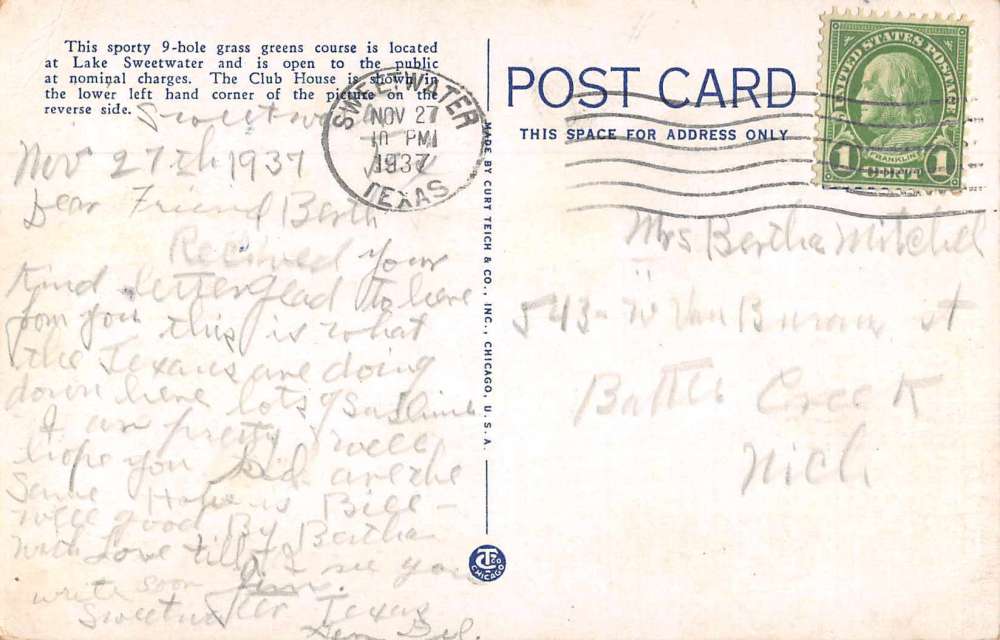 This sporty 9-hole grass greens course is located
at Lake Sweetwater and is open to the public
at nominal charges. The Club House is shown in
the lower left hand corner of the picture on the
reverse side.
Sweetwater
Nov 27th 1937
Dear Friend Berth
Recieved your
Kind letter glad to here
from you this is what
the Texans are doing
down here lots of Sunshine
I am pretty well
hope you are the
Same Bill
well good By Bertha
with Love till I see you
write soon
Sweetwater Texas
MADE BY CURT TEICH & CO., INC., CHICAGO, U. S. A.
CT CO
CHICAGO
POST CARD
THIS SPACE FOR ADDRESS ONLY
SWEETWATER
NOV 27
10 PM
1937
TEXAS
UNITED STATES POSTAGE
FRANKLIN
1 1
Mrs Bertha Mitchell
543 - W Van Buren st
Battle Creek
Mich